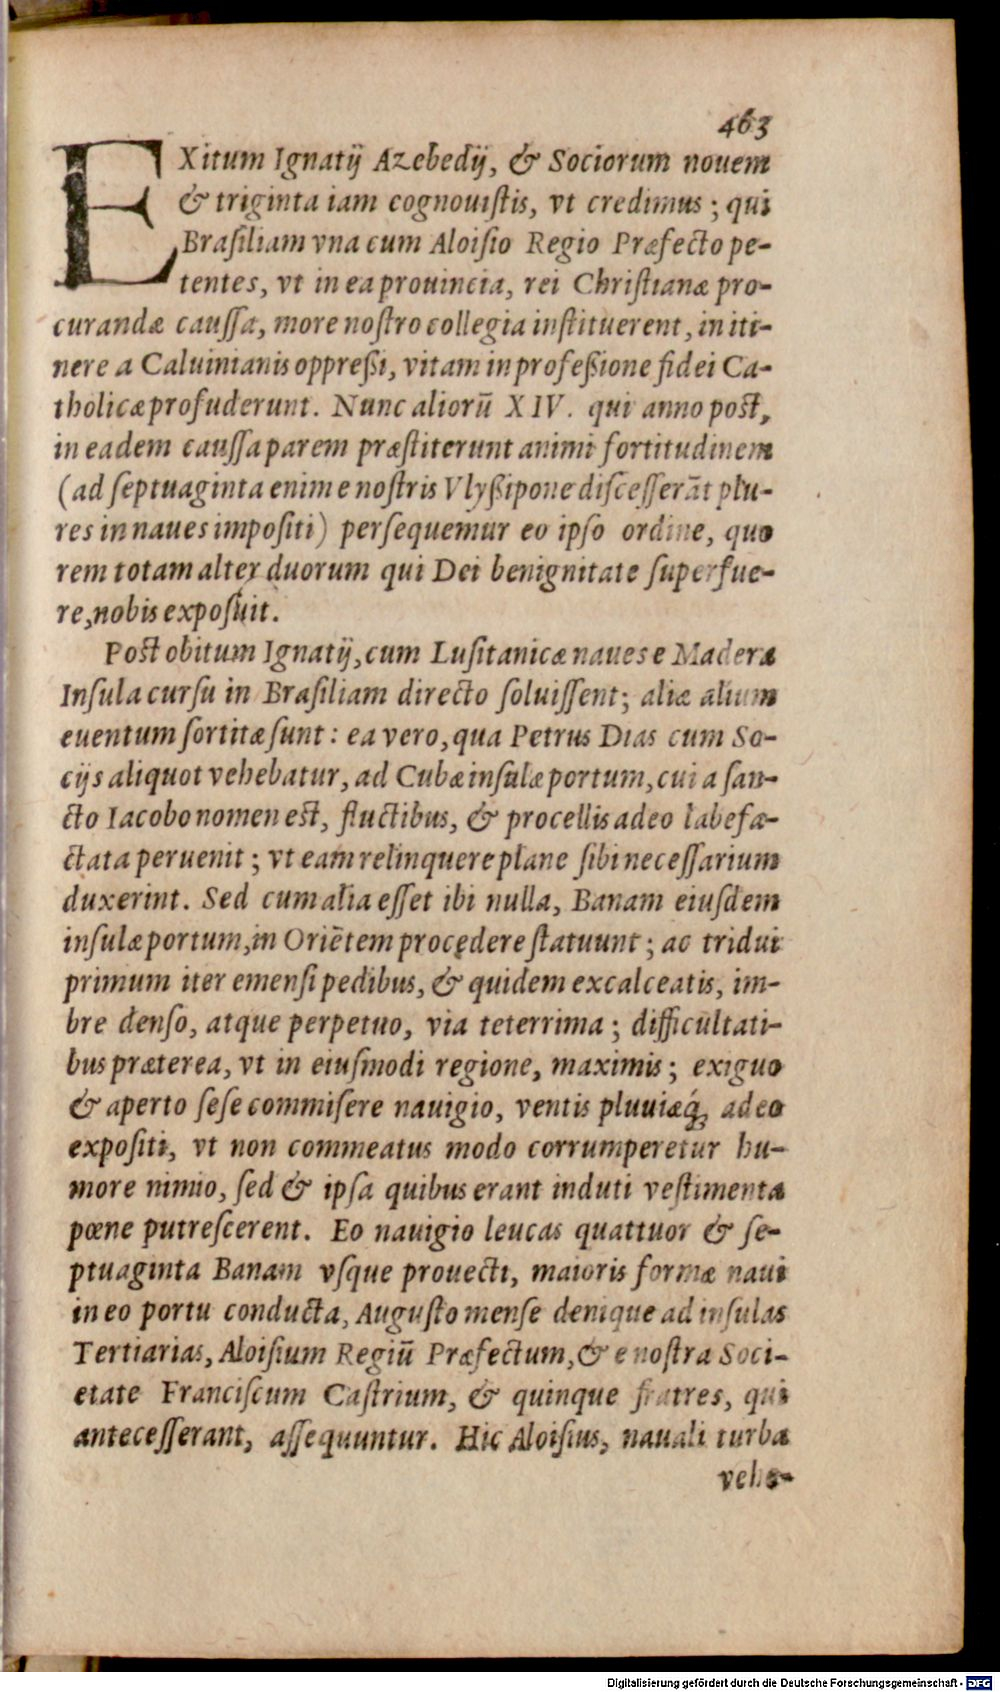 463
EXitum Ignatij Azebedij, & Sociorum nouem
& triginta iam cognouiſtis, vt credimus; qui
Braſiliam vna cum Aloiſio Regio Præfecto pe-
tentes, vt in ea prouincia, rei Chriſtianæ pro-
curandæ cauſſa, more noſtro collegia inſtituerent, in iti-
nere a Caluinianis oppreßi, vitam in profeßione fidei Ca-
tholicæ profuderunt. Nunc aliorū XIV. qui anno poſt,
in eadem cauſſa parem præſtiterunt animi fortitudinem
(ad ſeptuaginta enim e noſtris Vlyßipone diſceſſerāt plu-
res in naues impoſiti) perſequemur eo ipſo ordine, quo
rem totam alter duorum qui Dei benignitate ſuperfue-
re, nobis expoſuit.
Poſt obitum Ignatij, cum Luſitanicæ naues e Madera
Inſula curſu in Braſiliam directo ſoluiſſent; aliæ alium
euentum ſortitæ ſunt: ea vero, qua Petrus Dias cum So-
cijs aliquot vehebatur, ad Cubæ inſulæ portum, cui a ſan-
cto Iacobo nomen eſt, fluctibus, & procellis adeo labefa-
ctata peruenit; vt eam relinquere plane ſibi neceſſarium
duxerint. Sed cum alia eſſet ibi nulla, Banam eiuſdem
inſulæ portum, in Oriētem procędere ſtatuunt; ac tridui
primum iter emenſi pedibus, & quidem excalceatis, im-
bre denſo, atque perpetuo, via teterrima; difficultati-
bus præterea, vt in eiuſmodi regione, maximis; exiguo
& aperto ſeſe commiſere nauigio, ventis pluuiæq́; adeo
expoſiti, vt non commeatus modo corrumperetur hu-
more nimio, ſed & ipſa quibus erant induti veſtimenta
pœne putreſcerent. Eo nauigio leucas quattuor & ſe-
ptuaginta Banam vſque prouecti, maioris formæ naui
in eo portu conducta, Auguſto menſe denique ad inſulas
Tertiarias, Aloiſium Regiū Præfectum, & e noſtra Soci-
etate Franciſcum Caſtrium, & quinque fratres, qui
anteceſſerant, aſſequuntur. Hic Aloiſius, nauali turba
vehe-
Digitalisierung gefördert durch die Deutsche Forschungsgemeinschaft - DFG